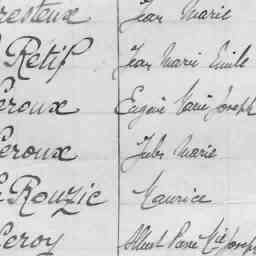 resteux Jean Marie
Retif Jean Marie Emile
eroux Eugène Marie Joseph
eroux Jules Marie
Rouzic Maurice
eroy Albert Pierre Mie Joseph